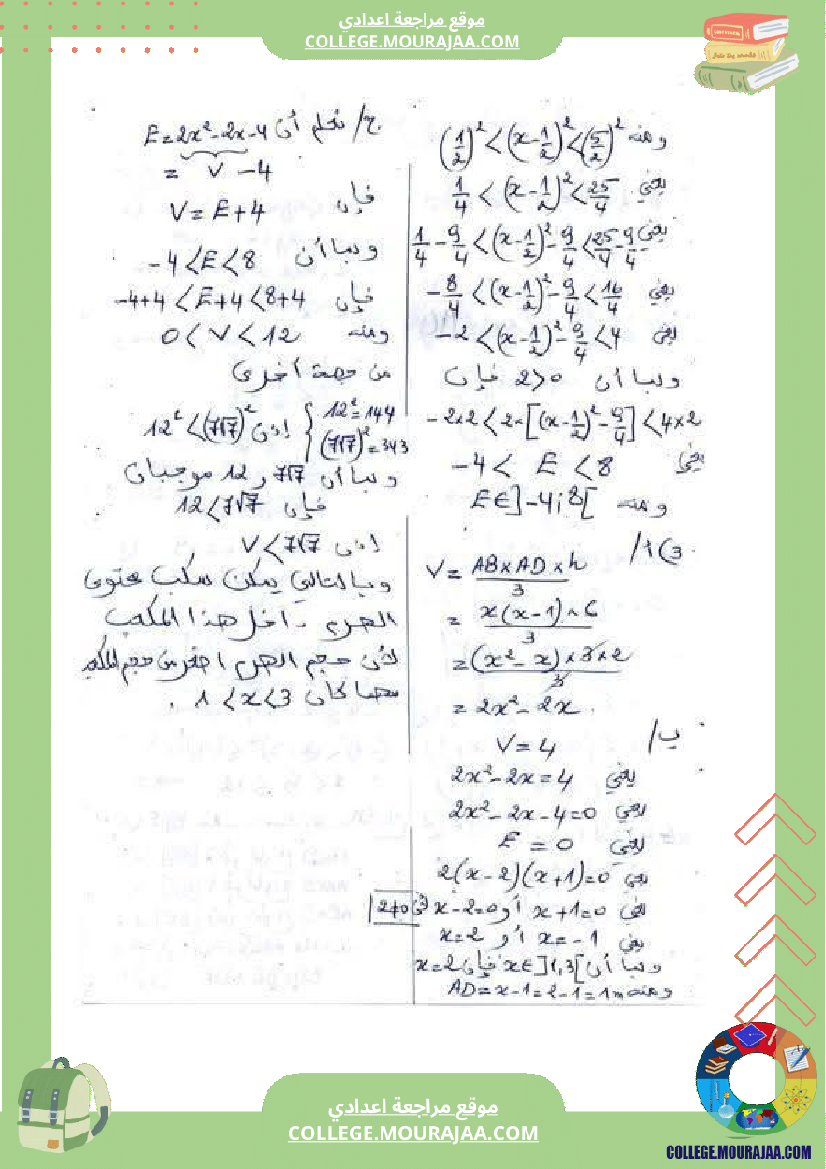 موقع مراجعة اعدادي
COLLEGE.MOURAJAA.COM
ومنه (1/2)² < (x-1/2)² < (5/2)²
يعني 1/4 < (x-1/2)² < 25/4
يعني 1/4 - 9/4 < (x-1/2)² - 9/4 < 25/4 - 9/4
يعني -8/4 < (x-1/2)² - 9/4 < 16/4
يعني -2 < (x-1/2)² - 9/4 < 4
وبما أن 2>0 فإن
-2×2 < 2×[(x-1/2)² - 9/4] < 4×2
يعني -4 < E < 8
ومنه E∈]-4;8[
3) أ/
V = AB×AD×h/3
= x(x-1)×6/3
= (x²-x)×3×2/3
= 2x²-2x.
ب/ V=4
يعني 2x²-2x=4
يعني 2x²-2x-4=0
يعني E=0
يعني 2(x-2)(x+1)=0
يعني x+1=0 أو x-2=0 2≠0
يعني x=-1 أو x=2
وبما أن x∈]1,3[ فإن x=2
ومنه AD=x-1=2-1=1m
ج/ نعلم أن E=2x²-2x-4
= V -4
فإن V=E+4
وبما أن -4<E<8
فإن -4+4<E+4<8+4
ومنه 0<V<12
من جهة أخرى
12²=144
(7√7)²=343
إذن 12²<(7√7)²
وبما أن 7√7 و 12 موجبان
فإن 12<7√7
إذن V<7√7
وبالتالي يمكن سكب محتوى
الهرم داخل هذا المكعب
لأن حجم الهرم أصغر من حجم المكعب
مهما كان 1<x<3.
موقع مراجعة اعدادي
COLLEGE.MOURAJAA.COM
COLLEGE.MOURAJAA.COM